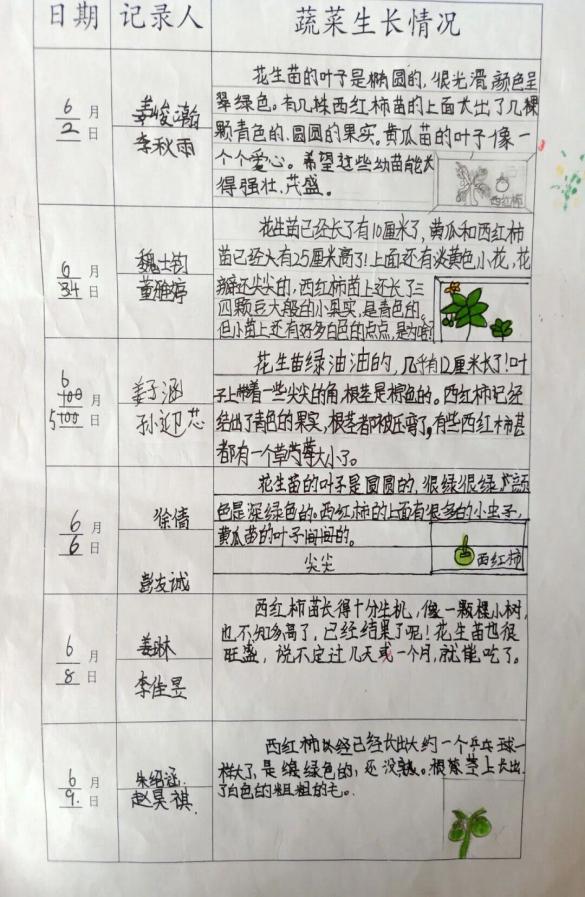 日期 记录人 蔬菜生长情况
6月2日
姜峻瀚
李秋雨
花生苗的叶子是椭圆的,很光滑,颜色呈
翠绿色。有几株西红柿苗的上面大出了几棵
颗青色的、圆圆的果实。黄瓜苗的叶子像一
个个爱心。希望这些幼苗能大
得强壮、茂盛。
西红柿
6月4日
魏士钧
董雅婷
花生苗已经长了有10厘米了,黄瓜和西红柿
苗已经大有25厘米高了!上面还有淡黄色小花,花
瓣还尖尖的,西红柿苗上还长了三
四颗豆大般的小果实,是青色的。
但小苗上还有好多白色的点点,是为啥?
6月5日
姜子涵
孙迎芯
花生苗绿油油的,几乎有12厘米长了!叶
子上带着一些尖尖的角,根茎是棕色的。西红柿已经
结出了青色的果实,根茎都被压弯了,有些西红柿甚
都有一个草莓大小了。
6月6日
徐倩
彭友诚
花生苗的叶子是圆圆的,很绿很绿,颜
色是深绿色的。西红柿的上面有很多的小虫子,
黄瓜苗的叶子
尖尖
的。
西红柿
6月8日
姜琳
李佳昱
西红柿苗长得十分生机,像一颗棵小树,
也不知多高了,已经结果了呢!花生苗也很
旺盛,说不定过几天或一个月,就能吃了。
6月9日
朱绍涵
赵昊祺
西红柿已经长出大约一个乒乓球一
样大了,是绿色的,还没熟。根茎上长出
了白色的粗粗的毛。